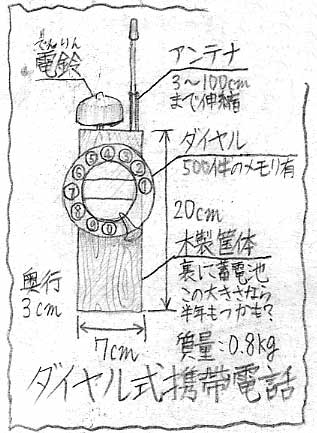 でんりん
電鈴
アンテナ
3〜100cm
まで伸縮
ダイヤル
500件のメモリ有
1
2
3
4
5
6
7
8
9
0
20cm
木製筐体
裏に蓄電池
この大きさなら
半年もつかも?
奥行
3cm
7cm
質量:0.8kg
ダイヤル式携帯電話